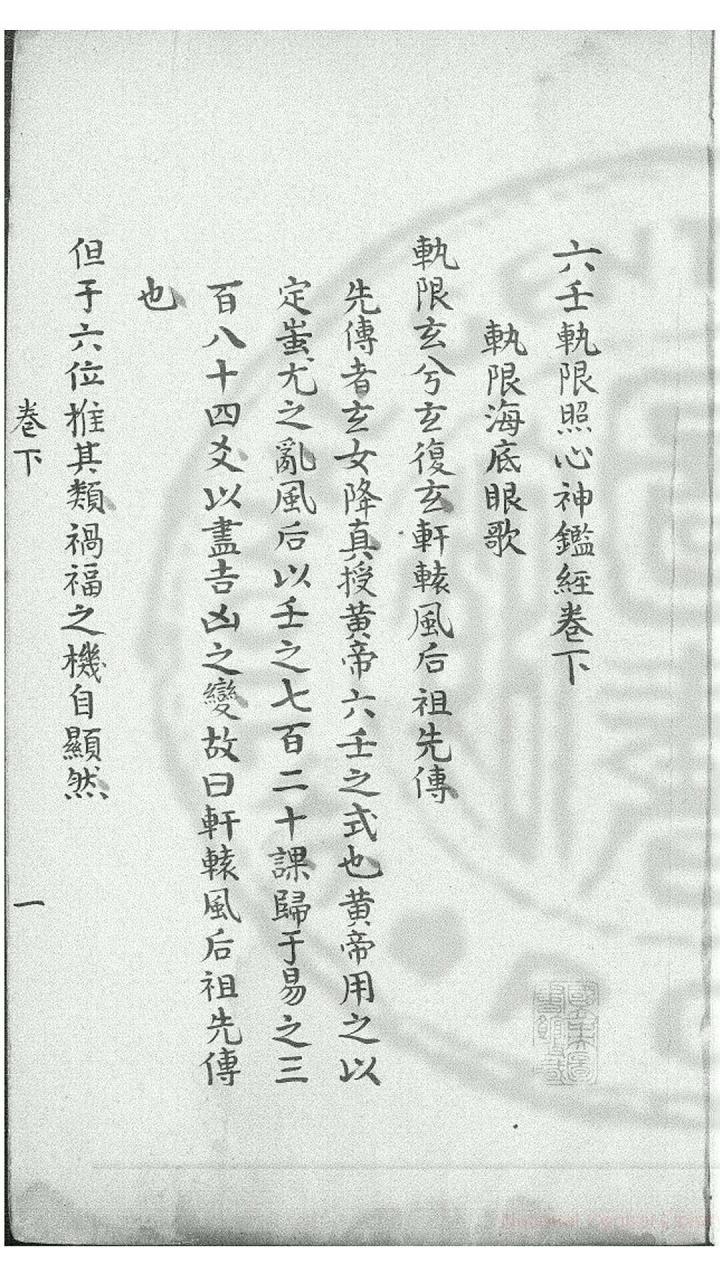 六壬軌限照心神鑑経卷下
軌限海底眼歌
軌限玄兮玄復玄軒轅風后祖先傳
先傳者玄女降真授黄帝六壬之式也黄帝用之以
定蚩尤之亂風后以壬之七百二十課歸于易之三
百八十四爻以盡吉凶之變故曰軒轅風后祖先傳
也
但于六位推其類禍福之機自顯然
卷下
一